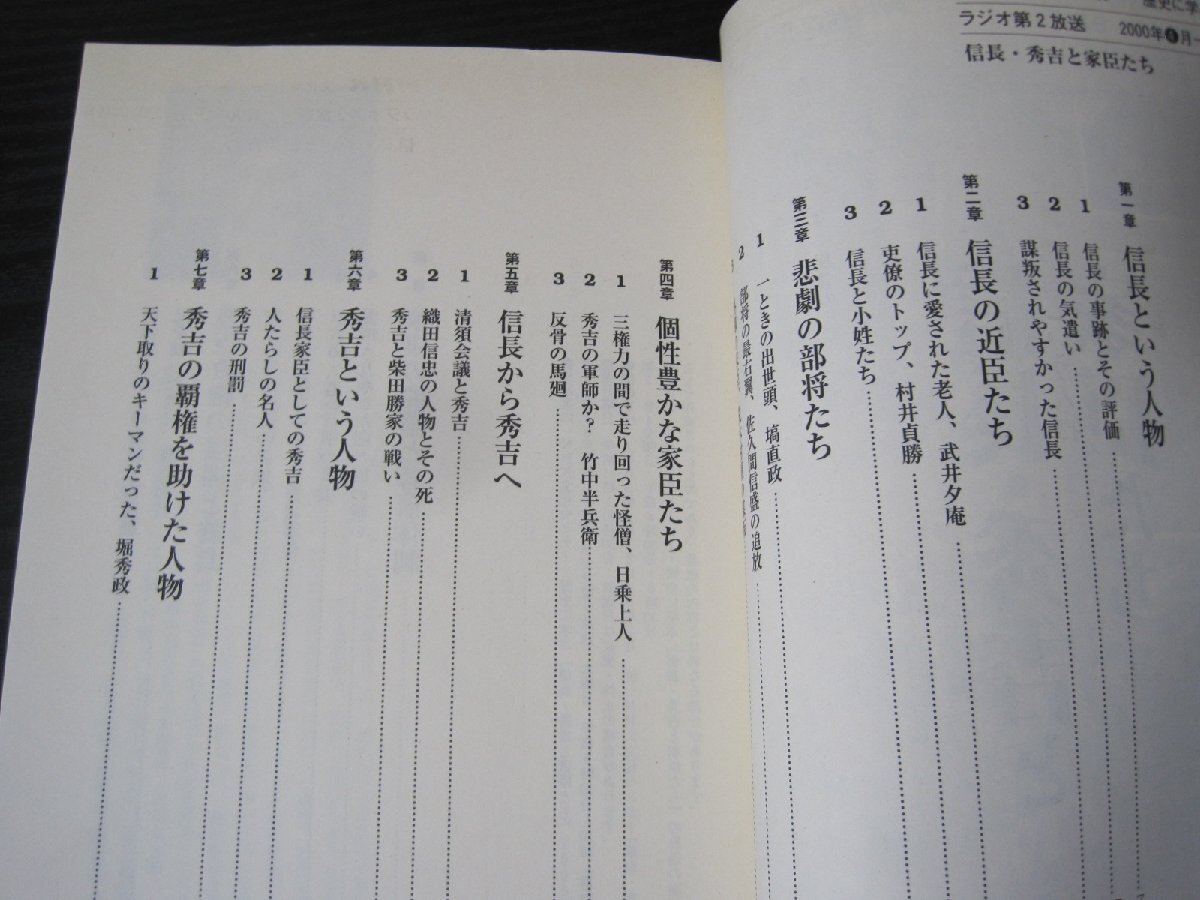 歴史に学
ラジオ第2放送 2000年❹月
信長・秀吉と家臣たち
第一章 信長という人物
1 信長の事跡とその評価
2 信長の気遣い
3 謀叛されやすかった信長
第二章 信長の近臣たち
1 信長に愛された老人、武井夕庵
2 吏僚のトップ、村井貞勝
3 信長と小姓たち
第三章 悲劇の部将たち
1 一ときの出世頭、塙直政
2 部将の最右翼、佐久間信盛の追放
3
第四章 個性豊かな家臣たち
1 三権力の間で走り回った怪僧、日乗上人
2 秀吉の軍師か? 竹中半兵衛
3 反骨の馬廻
第五章 信長から秀吉へ
1 清須会議と秀吉
2 織田信忠の人物とその死
3 秀吉と柴田勝家の戦い
第六章 秀吉という人物
1 信長家臣としての秀吉
2 人たらしの名人
3 秀吉の刑罰
第七章 秀吉の覇権を助けた人物
1 天下取りのキーマンだった、堀秀政